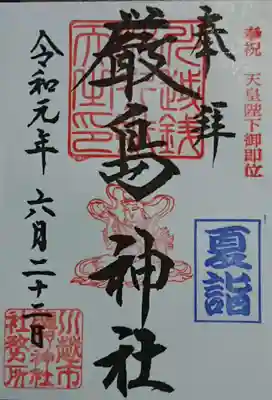 奉祝 天皇陛下御即位
奉拝
厳島神社
夏詣
令和元年 六月二十二日
川越市
社務所